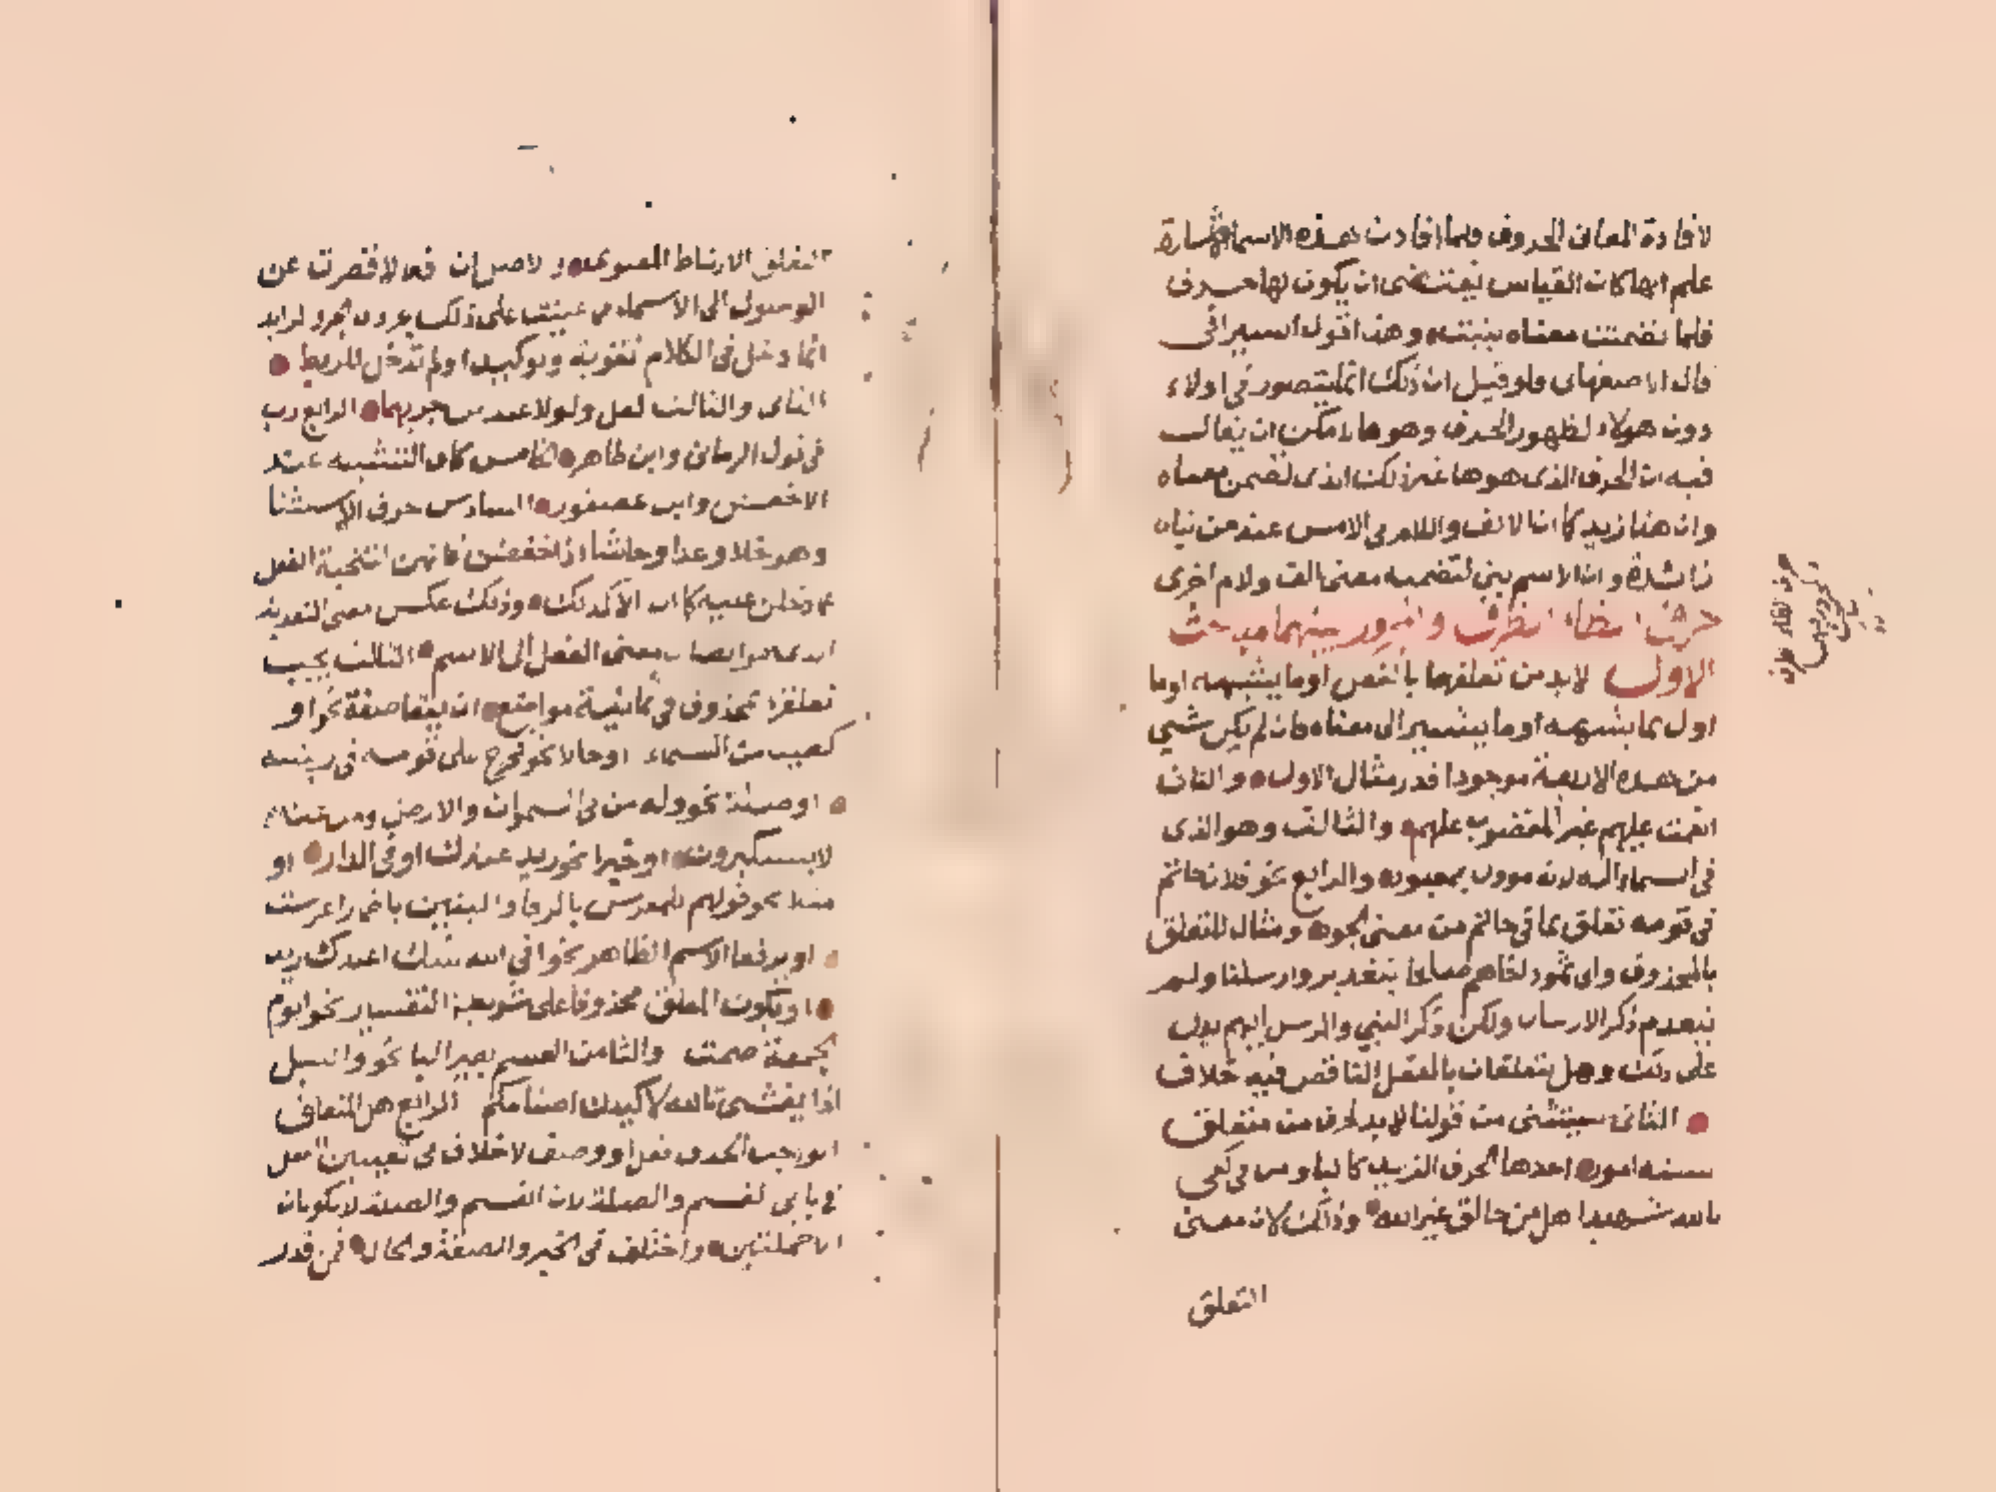 لافادة المعانى الحروف فلما افادت هذه الاسما الاشارة
علم انها كان القياس يقتضى ان يكون لها حرف
فلما تضمنت معناه بنيت وهذا قول السيرافى
قال الاصفهانى ولو قيل ان ذلك انما يتصور فى اولاء
دون هولاء لظهور الحرف وهو ها لامكن ان يقال
فيه ان الحرف الذى هو ها غير ذلك الذى تضمن معناه
وان هنا زيد كما ان الالف واللام فى الامس عند من بناه
زائدة وان الاسم بنى لتضمنه معنى الف ولام اخرى
حرف الظاء الظرف والمجرور فيهما مباحث
الاول لابد من تعلقهما بالفعل او ما يشبهه او ما
اول بما يشبهه او ما يشير الى معناه فان لم يكن شيى
من هذه الاربعة موجودا قدر مثال الاول والثانى
انعمت عليهم غير المغضوب عليهم والثالث وهو الذى
فى السماء اله لانه موول بمعبود والرابع نحو فلان حاتم
فى قومه تعلق بما فى حاتم من معنى الجود ومثال التعلق
بالمحذوف والى ثمود اخاهم صالحا بتقدير وارسلنا ولم
يتقدم ذكر الارسال ولكن ذكر النبي والمرسل اليهم يدل
على ذلك وهل يتعلقان بالفعل الناقص فيه خلاف
الثانى سيتثنى من قولنا لابد لحرف من متعلق
ستة امور احدها الحرف الزيد كالبا ومن فى كفى
بالله شهيدا هل من خالق غير الله وذلك لان معنى
التعلق
التعلق الارتباط المعنوى والاصل ان فعلا قصرت عن
الوصول الى الاسماء فاعينت على ذلك بحروف الجر والزايد
انما دخل فى الكلام تقوية وتوكيدا ولم تدخل للربط
الثانى والثالث لعل ولولا عند من جر بهما الرابع رب
فى قول الرمانى وابن طاهر الخامس كاف التشبيه عند
الاخفش وابن عصفور السادس حرف الاستثنا
وهو خلا وعدا وحاشا اذا خفضن فانهن لتنحية الفعل
عما دخلن عليه كما ان الا كذلك وذلك عكس معنى التعدية
الذى هو ايصال معنى الفعل الى الاسم الثالث يجب
تعلقهما بمحذوف فى ثمانية مواضع ان يقعا صفة نحو او
كصيب من السماء او حالا نحو فخرج على قومه فى زينته
او صلة نحو وله من فى السموات والارض ومن عنده
لا يستكبرون او خبرا نحو زيد عندك او فى الدار او
مثلا نحو قولهم للمعرس بالرفا والبنين باضمار اعرست
او يرفعا الاسم الظاهر نحو افى الله شك اعندك زيد
او يكون المعلق محذوفا على شريطة التفسير نحو ايوم
الجمعة صمت والثامن القسم بغير البا نحو والليل
اذا يغشى تالله لاكيدن اصنامكم الرابع هل المتعلق
الواجب الحذف فعل او وصف لا خلاف فى تعيين الفعل
فى بابى القسم والصلة لان القسم والصلة لا يكونان
الا جملتين واختلف فى الخبر والصفة والحال فمن قدر